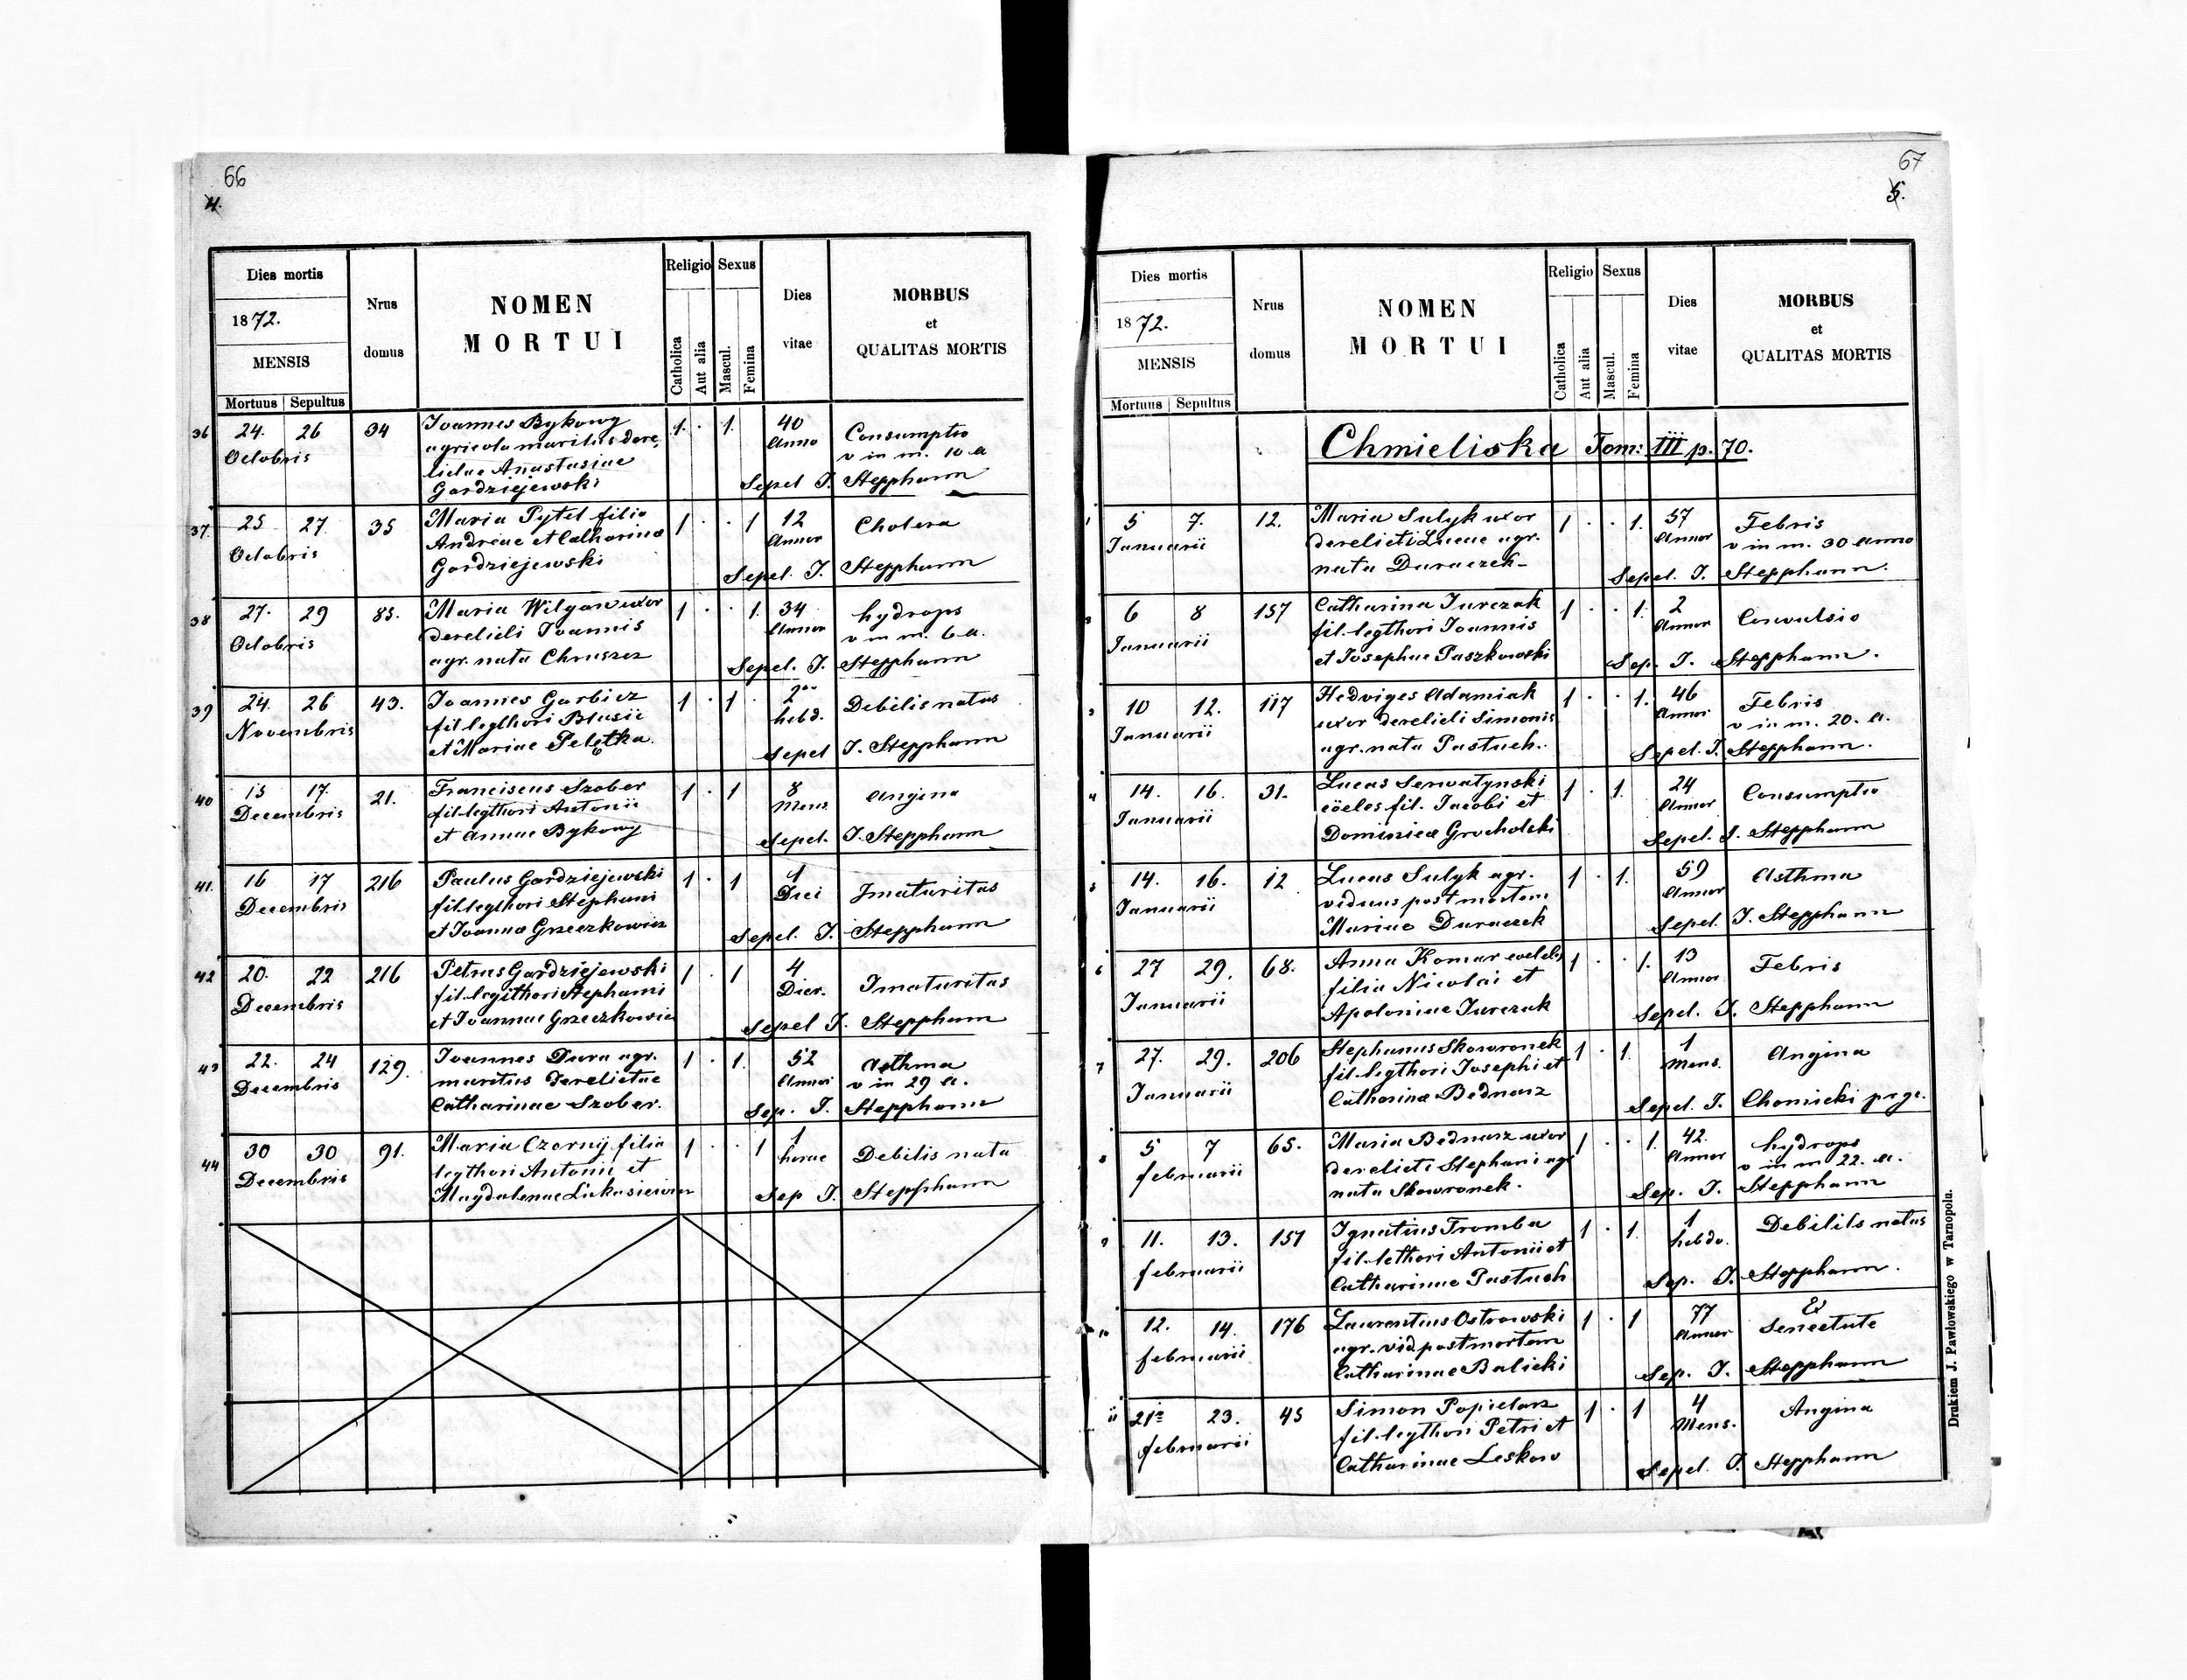 66
4.
Dies mortis
1872.
MENSIS
Mortuus Sepultus
Nrus
domus
NOMEN
MORTUI
Religio Sexus
Catholica
Aut alia
Mascul.
Femina
Dies
vitae
MORBUS
et
QUALITAS MORTIS
36 24. 26 34 Joannes Bykowy 1. . 1. 40
Octobris agricola maritus dere Anno Consumptio
lictae Anastasiae v in m. 10 a
Gordziejewski Sepel J. Stepphann
37. 25 27. 35 Maria Pytel filia 1 . . 1 12 Cholera
Octobris Andreae et Catharinae Annor
Gordziejewski Sepel. J. Stepphann
38 27. 29 85. Maria Wilgan uxor 1 . . 1. 34 hydrops
Octobris derelicti Joannis Annor v in m. 6 a.
agr. nata Chruszcz Sepel. J. Stepphann
39 24. 26 43. Joannes Garbicz 1 . 1 . 2 Debilis natus
Novembris fil. legthori Blasii hebd.
et Mariae Peletka. Sepel J. Stepphann
40 15 17. 21. Franciscus Szober 1 . 1 8 Angina
Decembris fil. legthori Antonii Mens
et Annae Bykowy Sepel. J. Stepphann
41. 16 17 216 Paulus Gordziejewski 1 . 1 1 Jmaturitas
Decembris fil. legthori Stephani Diei
et Joannae Grzeczkowicz Sepel. J. Stepphann
42 20. 22 216 Petrus Gordziejewski 1 . 1 4 Imaturitas
Decembris fil. legithori Stephani Dier.
et Joannae Grzeczkowicz Sepel J. Stepphann
43 22. 24 129. Joannes Dura agr. 1 . 1. 52 Asthma
Decembris maritus derelictae Annor v in 29 a.
Catharinae Szober. Sep. J. Stepphann
44 30 30 91. Maria Czornij filia 1 . . 1 1 Debilis nata
Decembris legthori Antonii et horae
Magdalenae Lukasiewicz Sep J. Stepphann
67
5.
Dies mortis
1872.
MENSIS
Mortuus Sepultus
Nrus
domus
NOMEN
MORTUI
Religio Sexus
Catholica
Aut alia
Mascul.
Femina
Dies
vitae
MORBUS
et
QUALITAS MORTIS
Chmieliska Tom: III p. 70.
1 5 7. 12. Maria Sulyk uxor 1 . . 1. 57 Febris
Januarii derelicti Lucae agr. Annor v in m. 30 anno
nata Duraczek Sepel. J. Stepphann.
2 6 8 157 Catharina Jurczak 1 . . 1. 2 Convulsio
Januarii fil. legthori Joannis Annor
et Josephae Paszkowski Sep. J. Stepphann.
3 10 12. 117 Hedviges Adamiak 1 . . 1. 46 Febris
Januarii uxor derelicti Simonis Annor v in m. 20. a.
agr. nata Pastuch. Sepel. J. Stepphann.
4 14. 16. 31. Lucas Serwatynski 1 . 1. 24 Consumptio
Januarii cöelebs fil. Jacobi et Annor
Dominicae Grocholski Sepel. J. Stepphann
5 14. 16. 12 Lucas Sulyk agr. 1 . 1. 59 Asthma
Januarii viduus post mortem Annor
Mariae Duraczek Sepel. J. Stepphann
6 27 29. 68. Anna Komar coelebs 1 . . 1. 13 Febris
Januarii filia Nicolai et Annor
Apoloniae Jurczak Sepel. J. Stepphann
7 27. 29. 206 Stephanus Skowronek 1 . 1. 1 Angina
Januarii fil. legthori Josephi et Mens.
Catharinae Bednarz Sepel. J. Chomicki
8 5 7 65. Maria Bednarz uxor 1 . . 1. 42. hydrops
februarii derelicti Stephani agr Annor v in m 22. a.
nata Skowronek. Sep. J. Stepphann
9 11. 13. 157 Ignatius Tromba 1 . 1. 1 Debilis natus
februarii fil. lethori Antonii et hebdo.
Catharinae Pastuch Sep. J. Stepphann.
10 12. 14. 176 Laurentius Ostrowski 1 . 1 77 Ex
februarii agr. vid post mortem Annor Senectute
Catharinae Balicki Sep. J. Stepphann
11 21 23. 45 Simon Popielarz 1 . 1 4 Angina
februarii fil. legthori Petri et Mens.
Catharinae Leskow Sepel. J. Stepphann
Drukiem J. Pawłowskiego w Tarnopolu.